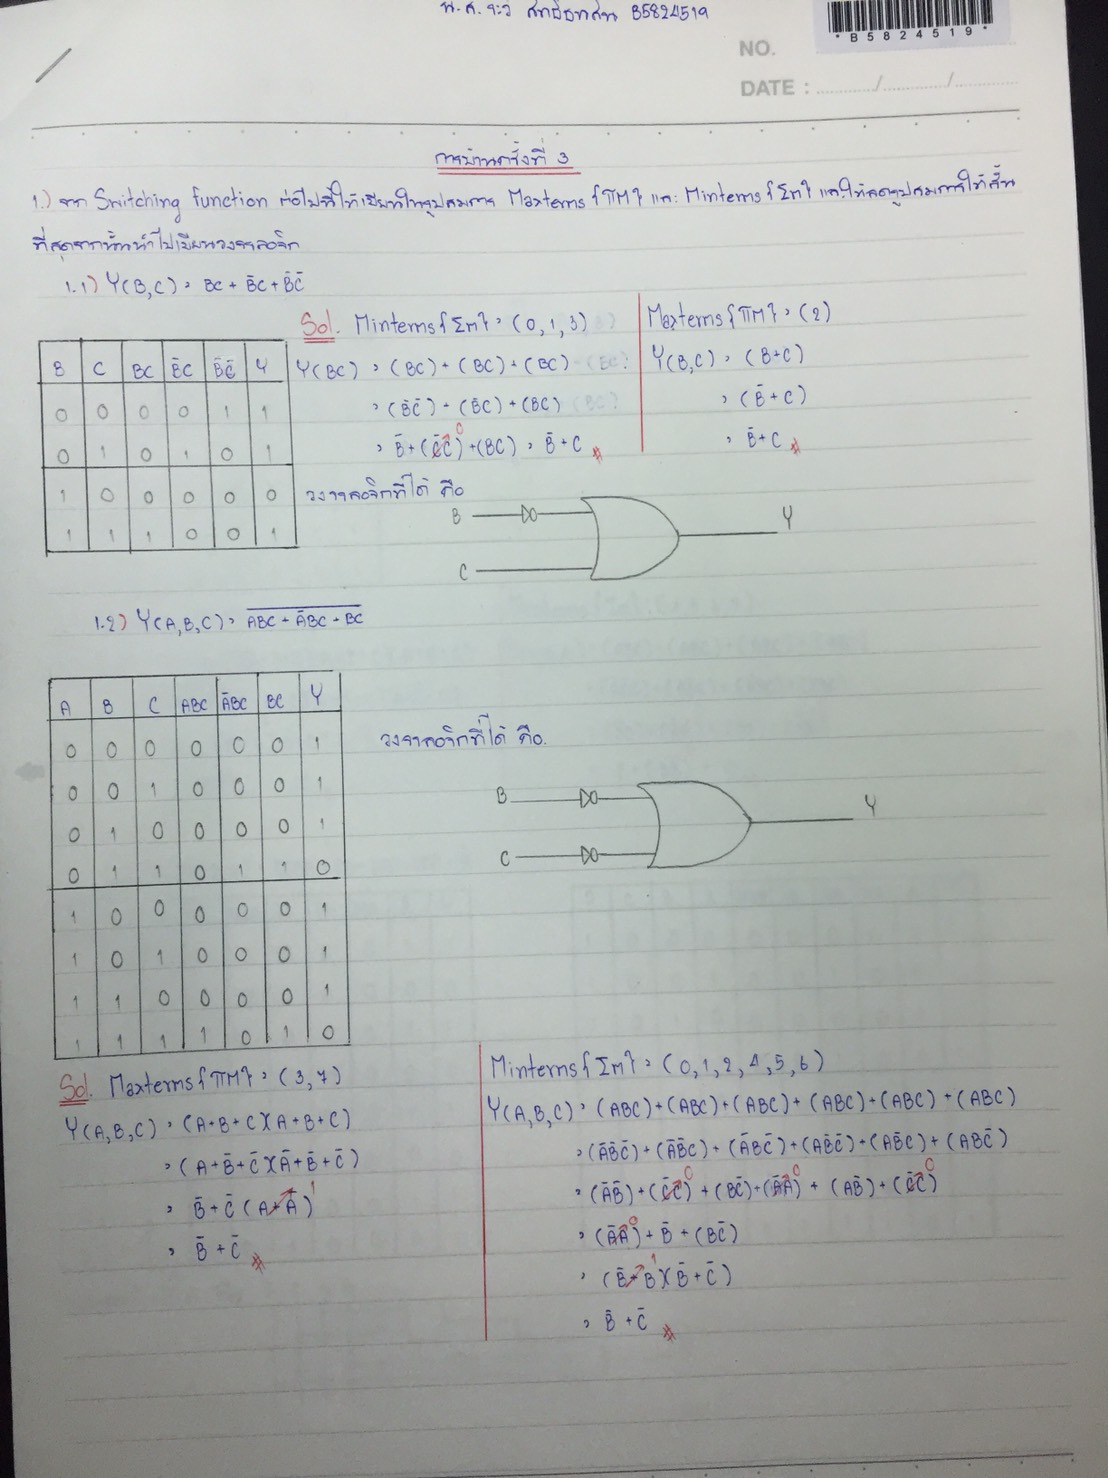 น.ส. B5824519
* B 5 8 2 4 5 1 9 *
NO.
DATE : ............/............/............
การบ้านครั้งที่ 3
1.) จาก Switching function ต่อไปนี้ให้เขียนให้ในรูปสมการ Maxterms {ΠM} และ Minterms {Σm} และให้ลดรูปสมการให้สั้น
ที่สุดจากนั้นนำไปเขียนวงจรลอจิก
1.1) Y(B,C) = BC + B̄C + B̄C̄
Sol. Minterms{Σm} = (0, 1, 3)
Y(BC) = (BC) + (BC) + (BC)
= (B̄C̄) + (B̄C) + (BC)
= B̄ + (C̄C)⁰ + (BC) = B̄ + C
Maxterms{ΠM} = (2)
Y(B,C) = (B+C)
= (B̄ + C)
= B̄ + C
B C BC B̄C B̄C̄ Y
0 0 0 0 1 1
0 1 0 1 0 1
1 0 0 0 0 0
1 1 1 0 0 1
วงจรลอจิกที่ได้ คือ
B
C
Y
1.2) Y(A,B,C) = ABC + ĀBC + BC
A B C ABC ĀBC BC Y
0 0 0 0 0 0 1
0 0 1 0 0 0 1
0 1 0 0 0 0 1
0 1 1 0 1 1 0
1 0 0 0 0 0 1
1 0 1 0 0 0 1
1 1 0 0 0 0 1
1 1 1 1 0 1 0
วงจรลอจิกที่ได้ คือ.
B
C
Y
Sol. Maxterms{ΠM} = (3,7)
Y(A,B,C) = (A+B+C)(A+B+C)
= (A+B̄+C̄)(Ā+B̄+C̄)
= B̄+C̄ (A+Ā)¹
= B̄ + C̄
Minterms{Σm} = (0, 1, 2, 4, 5, 6)
Y(A,B,C) = (ABC)+(ABC)+(ABC)+(ABC)+(ABC)+(ABC)
= (ĀB̄C̄)+(ĀB̄C)+(ĀBC̄)+(AB̄C̄)+(AB̄C)+(ABC̄)
= (ĀB̄)+(C̄C)⁰+(BC̄)+(ĀA)⁰+(AB̄)+(C̄C)⁰
= (ĀA)⁰ + B̄ + (BC̄)
= (B̄+B)¹(B̄+C̄)
= B̄ + C̄